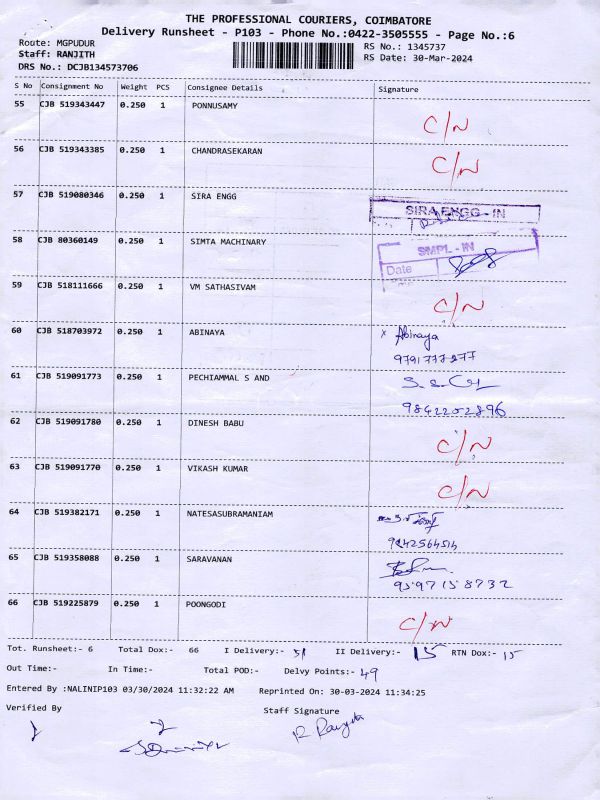 THE PROFESSIONAL COURIERS, COIMBATORE
Delivery Runsheet - P103 - Phone No.:0422-3505555 - Page No.:6
Route: MGPUDUR RS No.: 1345737
Staff: RANJITH RS Date: 30-Mar-2024
DRS No.: DCJB134573706
S No Consignment No Weight PCS Consignee Details Signature
55 CJB 519343447 0.250 1 PONNUSAMY C/N
56 CJB 519343385 0.250 1 CHANDRASEKARAN C/N
57 CJB 519080346 0.250 1 SIRA ENGG SIRA ENGG - IN
58 CJB 80360149 0.250 1 SIMTA MACHINARY SMPL - IN
Date
59 CJB 518111666 0.250 1 VM SATHASIVAM C/N
60 CJB 518703972 0.250 1 ABINAYA x Abinaya
9791777877
61 CJB 519091773 0.250 1 PECHIAMMAL S AND
9842202896
62 CJB 519091780 0.250 1 DINESH BABU C/N
63 CJB 519091770 0.250 1 VIKASH KUMAR C/N
64 CJB 519382171 0.250 1 NATESASUBRAMANIAM
9842564514
65 CJB 519358088 0.250 1 SARAVANAN
9597158732
66 CJB 519225879 0.250 1 POONGODI C/N
Tot. Runsheet:- 6 Total Dox:- 66 I Delivery:- 51 II Delivery:- 15 RTN Dox:- 15
Out Time:- In Time:- Total POD:- Delvy Points:- 49
Entered By :NALINIP103 03/30/2024 11:32:22 AM Reprinted On: 30-03-2024 11:34:25
Verified By Staff Signature